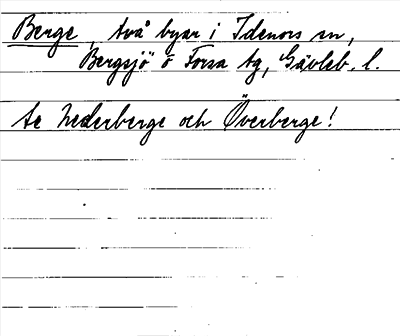 Berge, två byar i Idenors sn,
Bergsjö o Forsa tg, Gävleb. l.
Se Nederberge och Överberge!